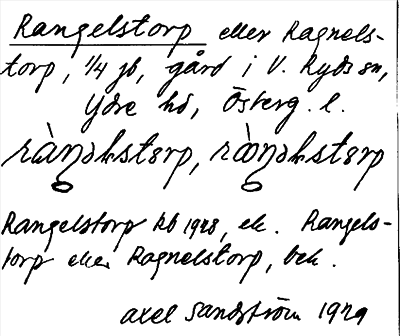 Rangelstorp eller Ragnels-
torp, 1/4 jb, gård i V. Ryds sn,
Ydre hd, Österg. l.
Rangelstorp kb 1928, ek. Rangels-
torp eller Ragnelstorp, bek.
Axel Sandström 1929